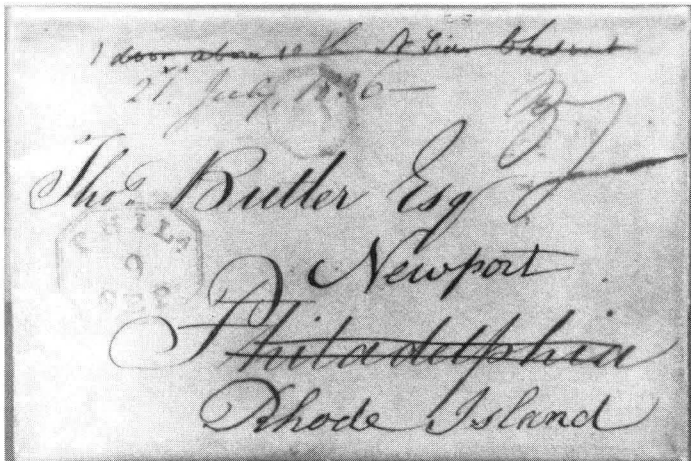 1 door above 10th St Chesnut
27. July, 1836 —
Thos. Butler Esq
Newport
Philadelphia
Rhode Island
PHILA